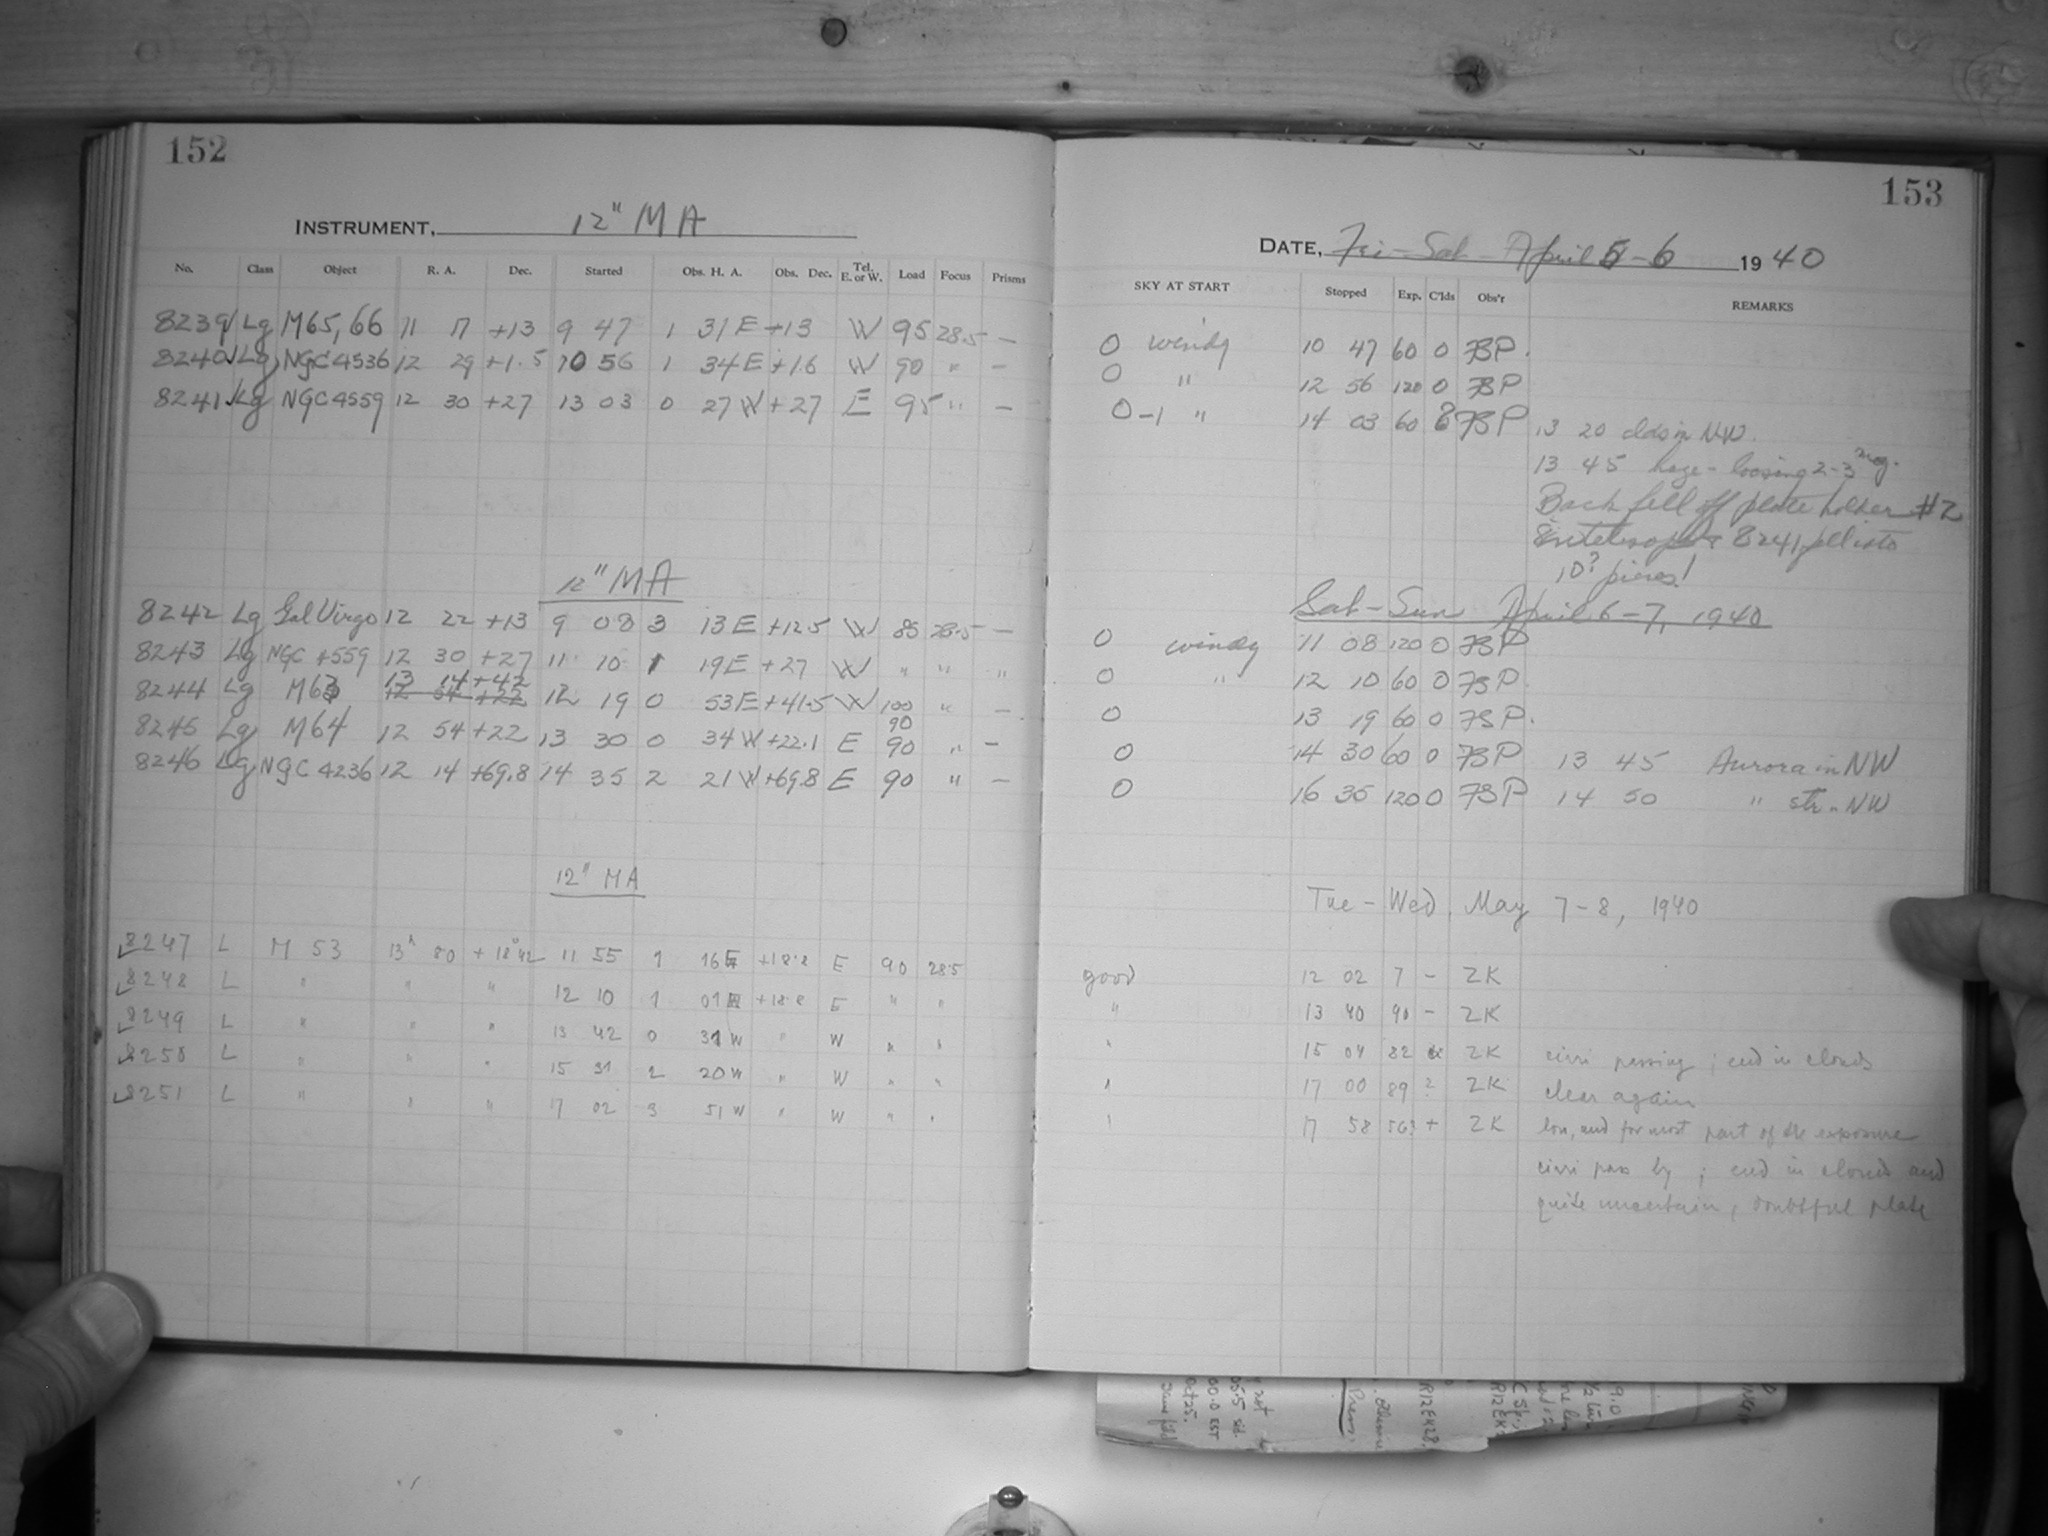 152
INSTRUMENT, 12" MA
No. Class Object R. A. Dec. Started Obs. H. A. Obs. Dec. Tel. E. or W. Load Focus Prisms
8239 Lg M65, 66 11 17 +13 9 47 1 31 E +13 W 95 28.5 —
8240 Lg NGC 4536 12 29 +1.5 10 56 1 34 E +1.6 W 90 " —
8241 Lg NGC 4559 12 30 +27 13 03 0 27 W +27 E 95 " —
12" MA
8242 Lg Gal Virgo 12 22 +13 9 08 3 13 E +12.5 W 85 28.5 —
8243 Lg NGC 4559 12 30 +27 11 10 1 19 E +27 W " " "
13 14 +42
8244 Lg M63 12 54 +22 12 19 0 53 E +41.5 W 100 " —
90
8245 Lg M64 12 54 +22 13 30 0 34 W +22.1 E 90 " —
8246 Lg NGC 4236 12 14 +69.8 14 35 2 21 W +69.8 E 90 " —
12" MA
8247 L M 53 13h 80 +18° 42 11 55 1 16 E +18.2 E 90 28.5
8248 L " " " 12 10 1 01 E +18.2 E " "
8249 L " " " 13 42 0 31 W " W " "
8250 L " " " 15 31 2 20 W " W " "
8251 L " " " 17 02 3 51 W " W " "
153
DATE, Fri – Sat – April 5 – 6 1940
SKY AT START Stopped Exp. C'lds Obs'r REMARKS
0 windy 10 47 60 0 BP.
0 " 12 56 120 0 BP
0–1 " 14 03 60 8 BP 13 20 clds in NW.
13 45 haze – loosing 2–3 mag.
Back fell off plate holder #2
in telescope & 8241 fell into
10? pieces!
Sat – Sun April 6–7, 1940
0 windy 11 08 120 0 BP
0 " 12 10 60 0 BP
0 13 19 60 0 BP.
0 14 30 60 0 BP 13 45 Aurora in NW
0 16 35 120 0 BP 14 50 " str. NW
Tue – Wed. May 7–8, 1940
good 12 02 7 – ZK
" 13 40 90 – ZK
" 15 04 82 ZK cirri passing; end in clouds
" 17 00 89 ? ZK clear again
" 17 58 56? + ZK low, and for most part of the exposure
cirri pass by; end in clouds and
quite uncertain, doubtful plate